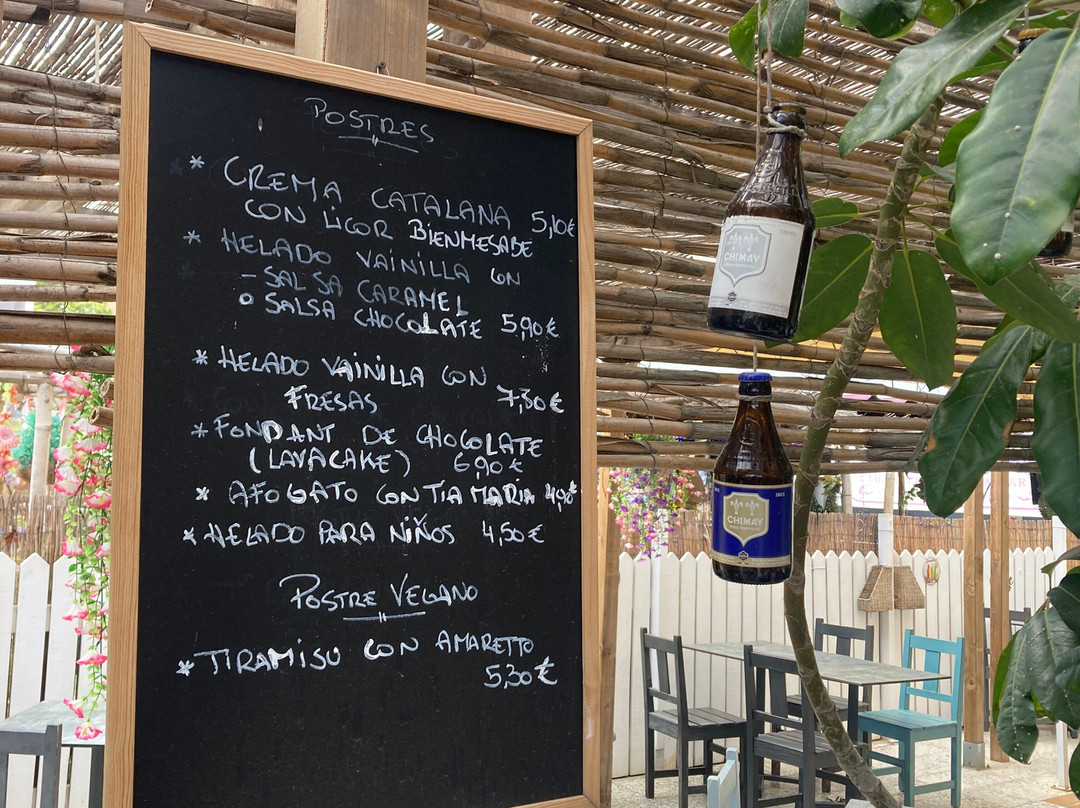 POSTRES
* CREMA CATALANA 5,10€
CON LICOR BIENMESABE
* HELADO VAINILLA CON
- SALSA CARAMEL
o SALSA CHOCOLATE 5,90€
* HELADO VAINILLA CON
FRESAS 7,30€
* FONDANT DE CHOCOLATE
(LAVACAKE) 6,90€
* AFOGATO CON TIA MARIA 4,90€
* HELADO PARA NIÑOS 4,50€
POSTRE VEGANO
* TIRAMISU CON AMARETTO
5,30€
CHIMAY
CHIMAY